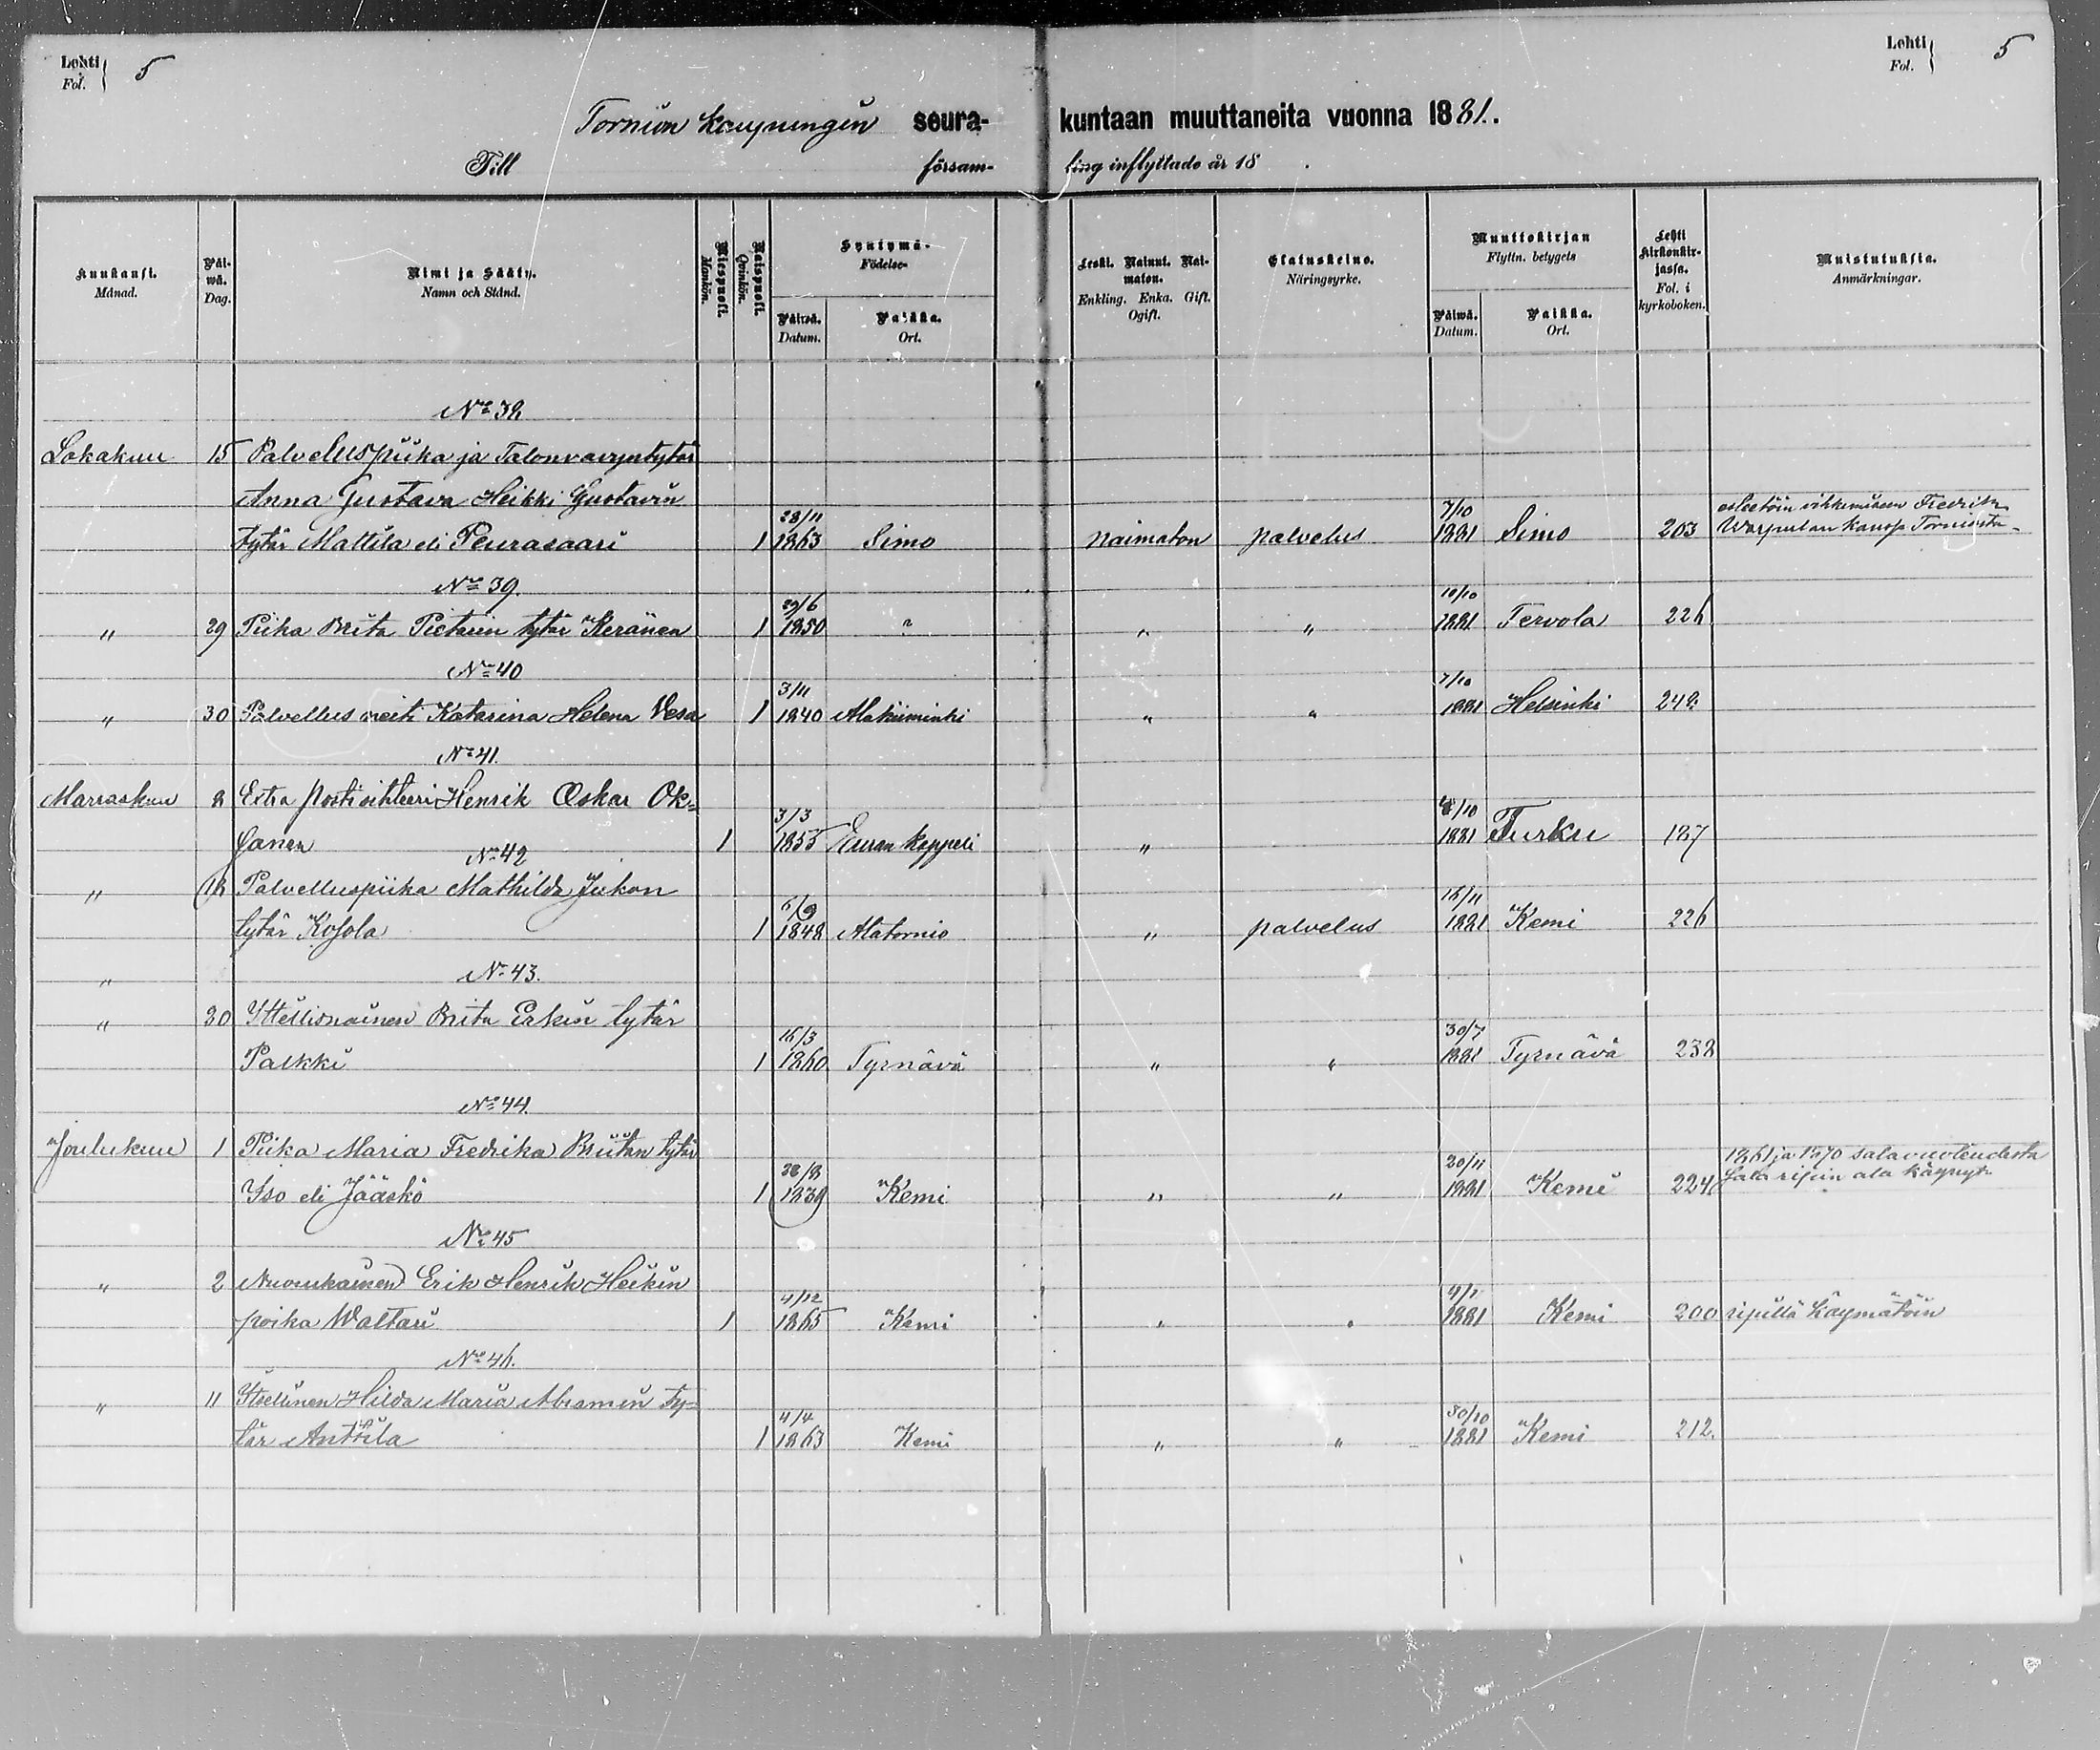 Lehti
Fol. } 5
Lehti
Fol. } 5
Tornion kaupungin seura- kuntaan muuttaneita vuonna 1881.
Till försam- ling inflyttade år 18 .
Kuukausi.
Månad.
Päi-
wä.
Dag.
Nimi ja Sääty.
Namn och Stånd.
Miespuoli.
Mankön.
Naispuoli.
Qvinkön.
Syntymä-
Födelse-
Päiwä.
Datum.
Paikka.
Ort.
Leski. Nainut. Nai-
maton.
Enkling. Enka. Gift.
Ogift.
Elatuskeino.
Näringsyrke.
Muuttokirjan
Flyttn. betygets
Päiwä.
Datum.
Paikka.
Ort.
Lehti
kirkonkir-
jassa.
Fol. i
kyrkoboken.
Muistutuksia.
Anmärkningar.
No 38
Lokakuu 15 Palveluspiika ja Talonvavyntytär
Anna Gustava Heikki Gustavin 28/11 7/10 esteetöin vihkimiseen Fredrik
tytär Mattila eli Peurasaari 1 1863 Simo naimaton palvelus 1881 Simo 203 Warpulan kanssa Torniosta
No 39.
29/6 10/10
" 29 Piika Briita Pietarin tytär Keränen 1 1850 ? " " 1881 Tervola 226
No 40
3/11 7/10
" 30 Palvellus neiti Katarina Helena Vesa 1 1840 Alakiiminki " " 1881 Helsinki 248
No 41.
Marraskuu 8 Extra postisihteeri Henrik Oskar Ok=
3/3 /10
sanen 1 1855 Euran kappeli " 1881 Turku 187
No 42
" 18 Palvelluspiika Mathilda Jukon
6/9 18/11
tytär Kosola 1 1848 Alatornio " palvelus 1881 Kemi 226
" No 43.
" 30 Ittellisnainen Briita Erkin tytär
16/3 30/7
Palkki 1 1860 Tyrnävä " " 1881 Tyrnävä 238
No 44.
Joulukuu 1 Piika Maria Fredrika Briitan tytär 1861 ja 1870 salavuoteudesta
/8 20/11
Iso eli Jääskö 1 1839 Kemi " " 1881 Kemi 224 Sala ripin ala käynyt
No 45
" 2 Nuorukainen Erik Henrik Heikin
4/12
poika Waltari 1 1865 Kemi " " 1881 Kemi 200 ripillä käymätöin
No 46.
" 11 Itsellinen Hilda Maria Abramin ty=
4/4 30/10
tär Anttila 1 1863 Kemi " " 1881 Kemi 212.